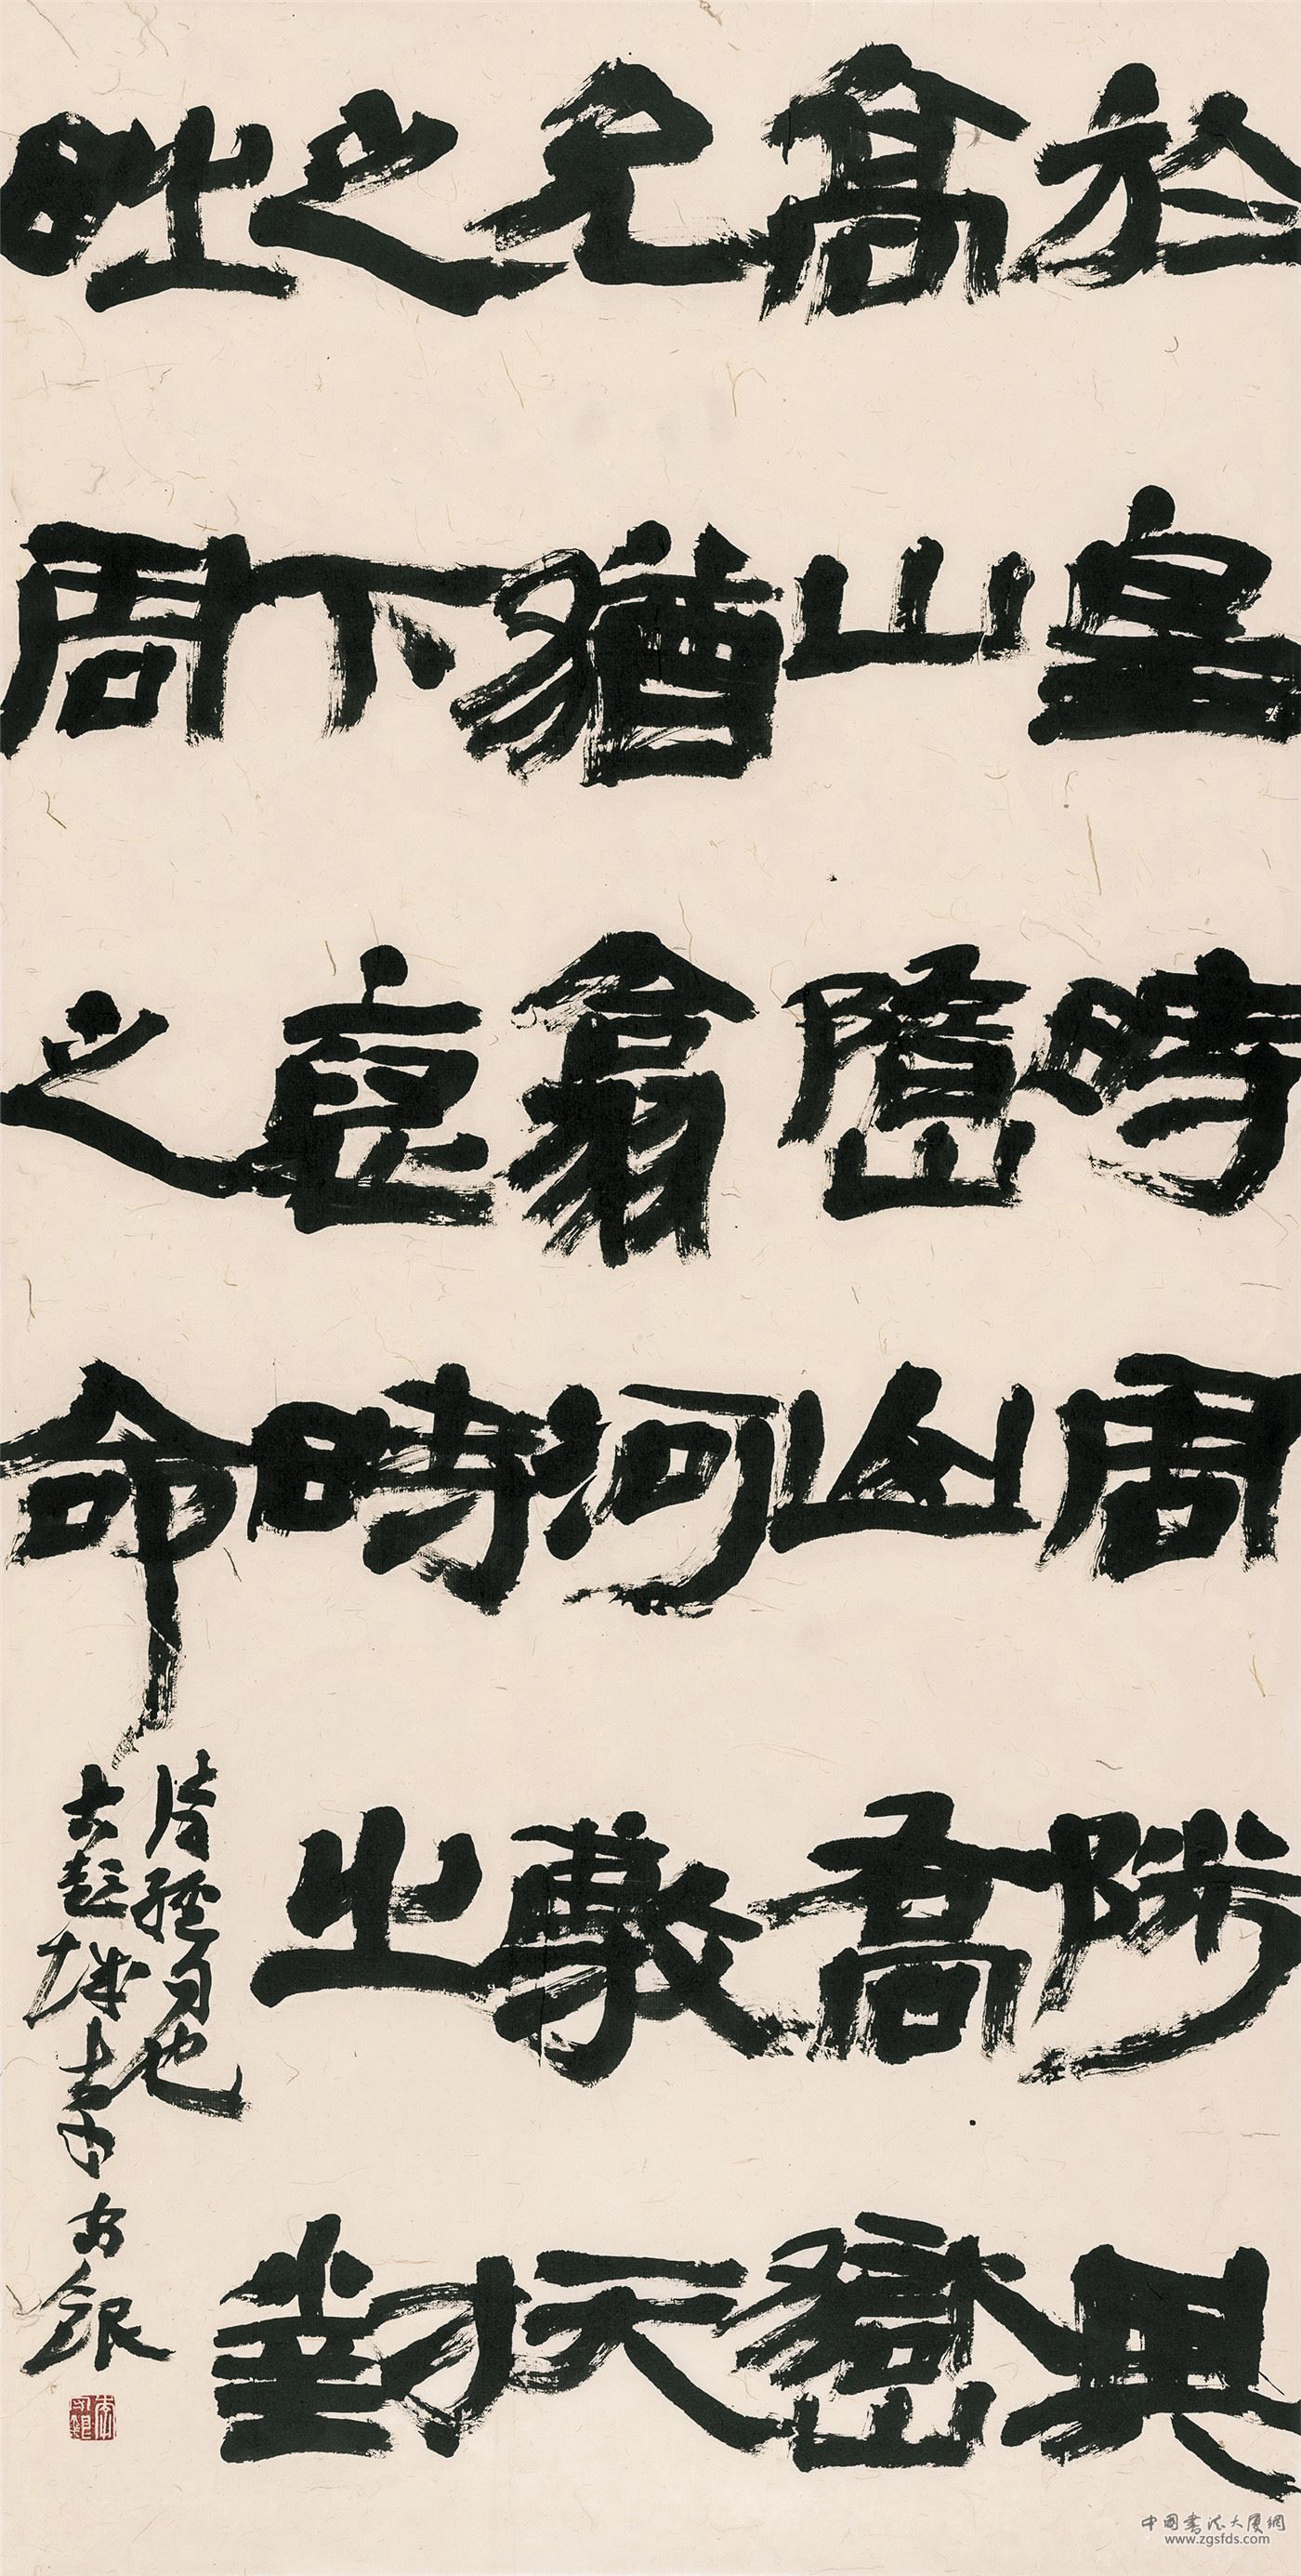 於皇時周陟其
高山嶞山喬嶽
允猶翕河敷天
之下裒時之對
時周之命
詩經句也
古彭城 守銀
中国书法大厦网
www.zgsfds.com